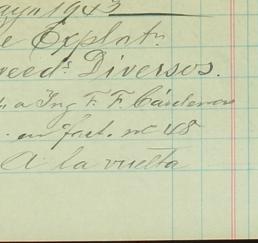 1943
e Explotn
Diversos.
a Ing F. F. Cárdenas
en fact. no 48
A la vuelta